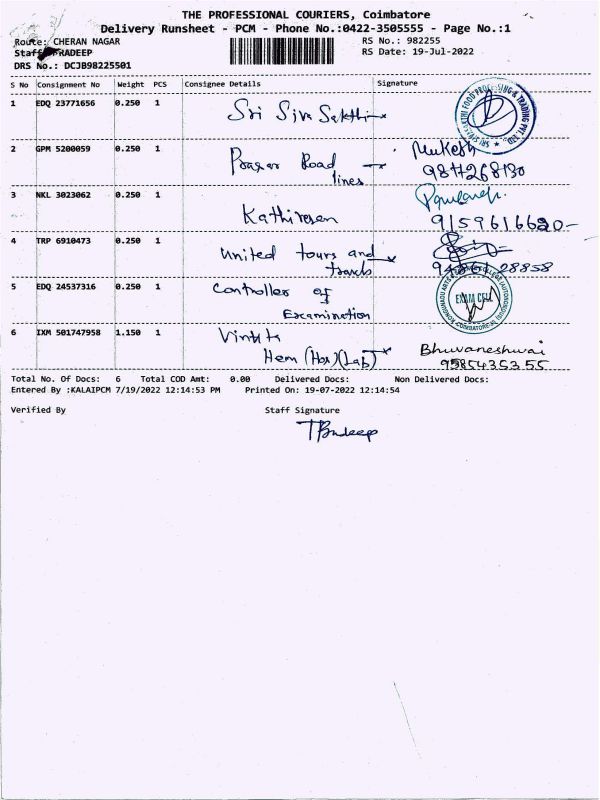 THE PROFESSIONAL COURIERS, Coimbatore
Delivery Runsheet - PCM - Phone No.:0422-3505555 - Page No.:1
Route: CHERAN NAGAR RS No.: 982255
Staff: PRADEEP RS Date: 19-Jul-2022
DRS No.: DCJB98225501
S No Consignment No Weight PCS Consignee Details Signature
1 EDQ 23771656 0.250 1 Sri Siva Sakthi
2 GPM 5200059 0.250 1 Road Mukesh
lines
3 NKL 3023062 0.250 1
Kathiresan 9159616620
4 TRP 6910473 0.250 1 United tours and
travels 28858
5 EDQ 24537316 0.250 1 Controller of EXAM CELL
Examination
6 IXM 501747958 1.150 1
Hem (Hos)(Lab) Bhuvaneshwai
9585435355
Total No. Of Docs: 6 Total COD Amt: 0.00 Delivered Docs: Non Delivered Docs:
Entered By :KALAIPCM 7/19/2022 12:14:53 PM Printed On: 19-07-2022 12:14:54
Verified By Staff Signature